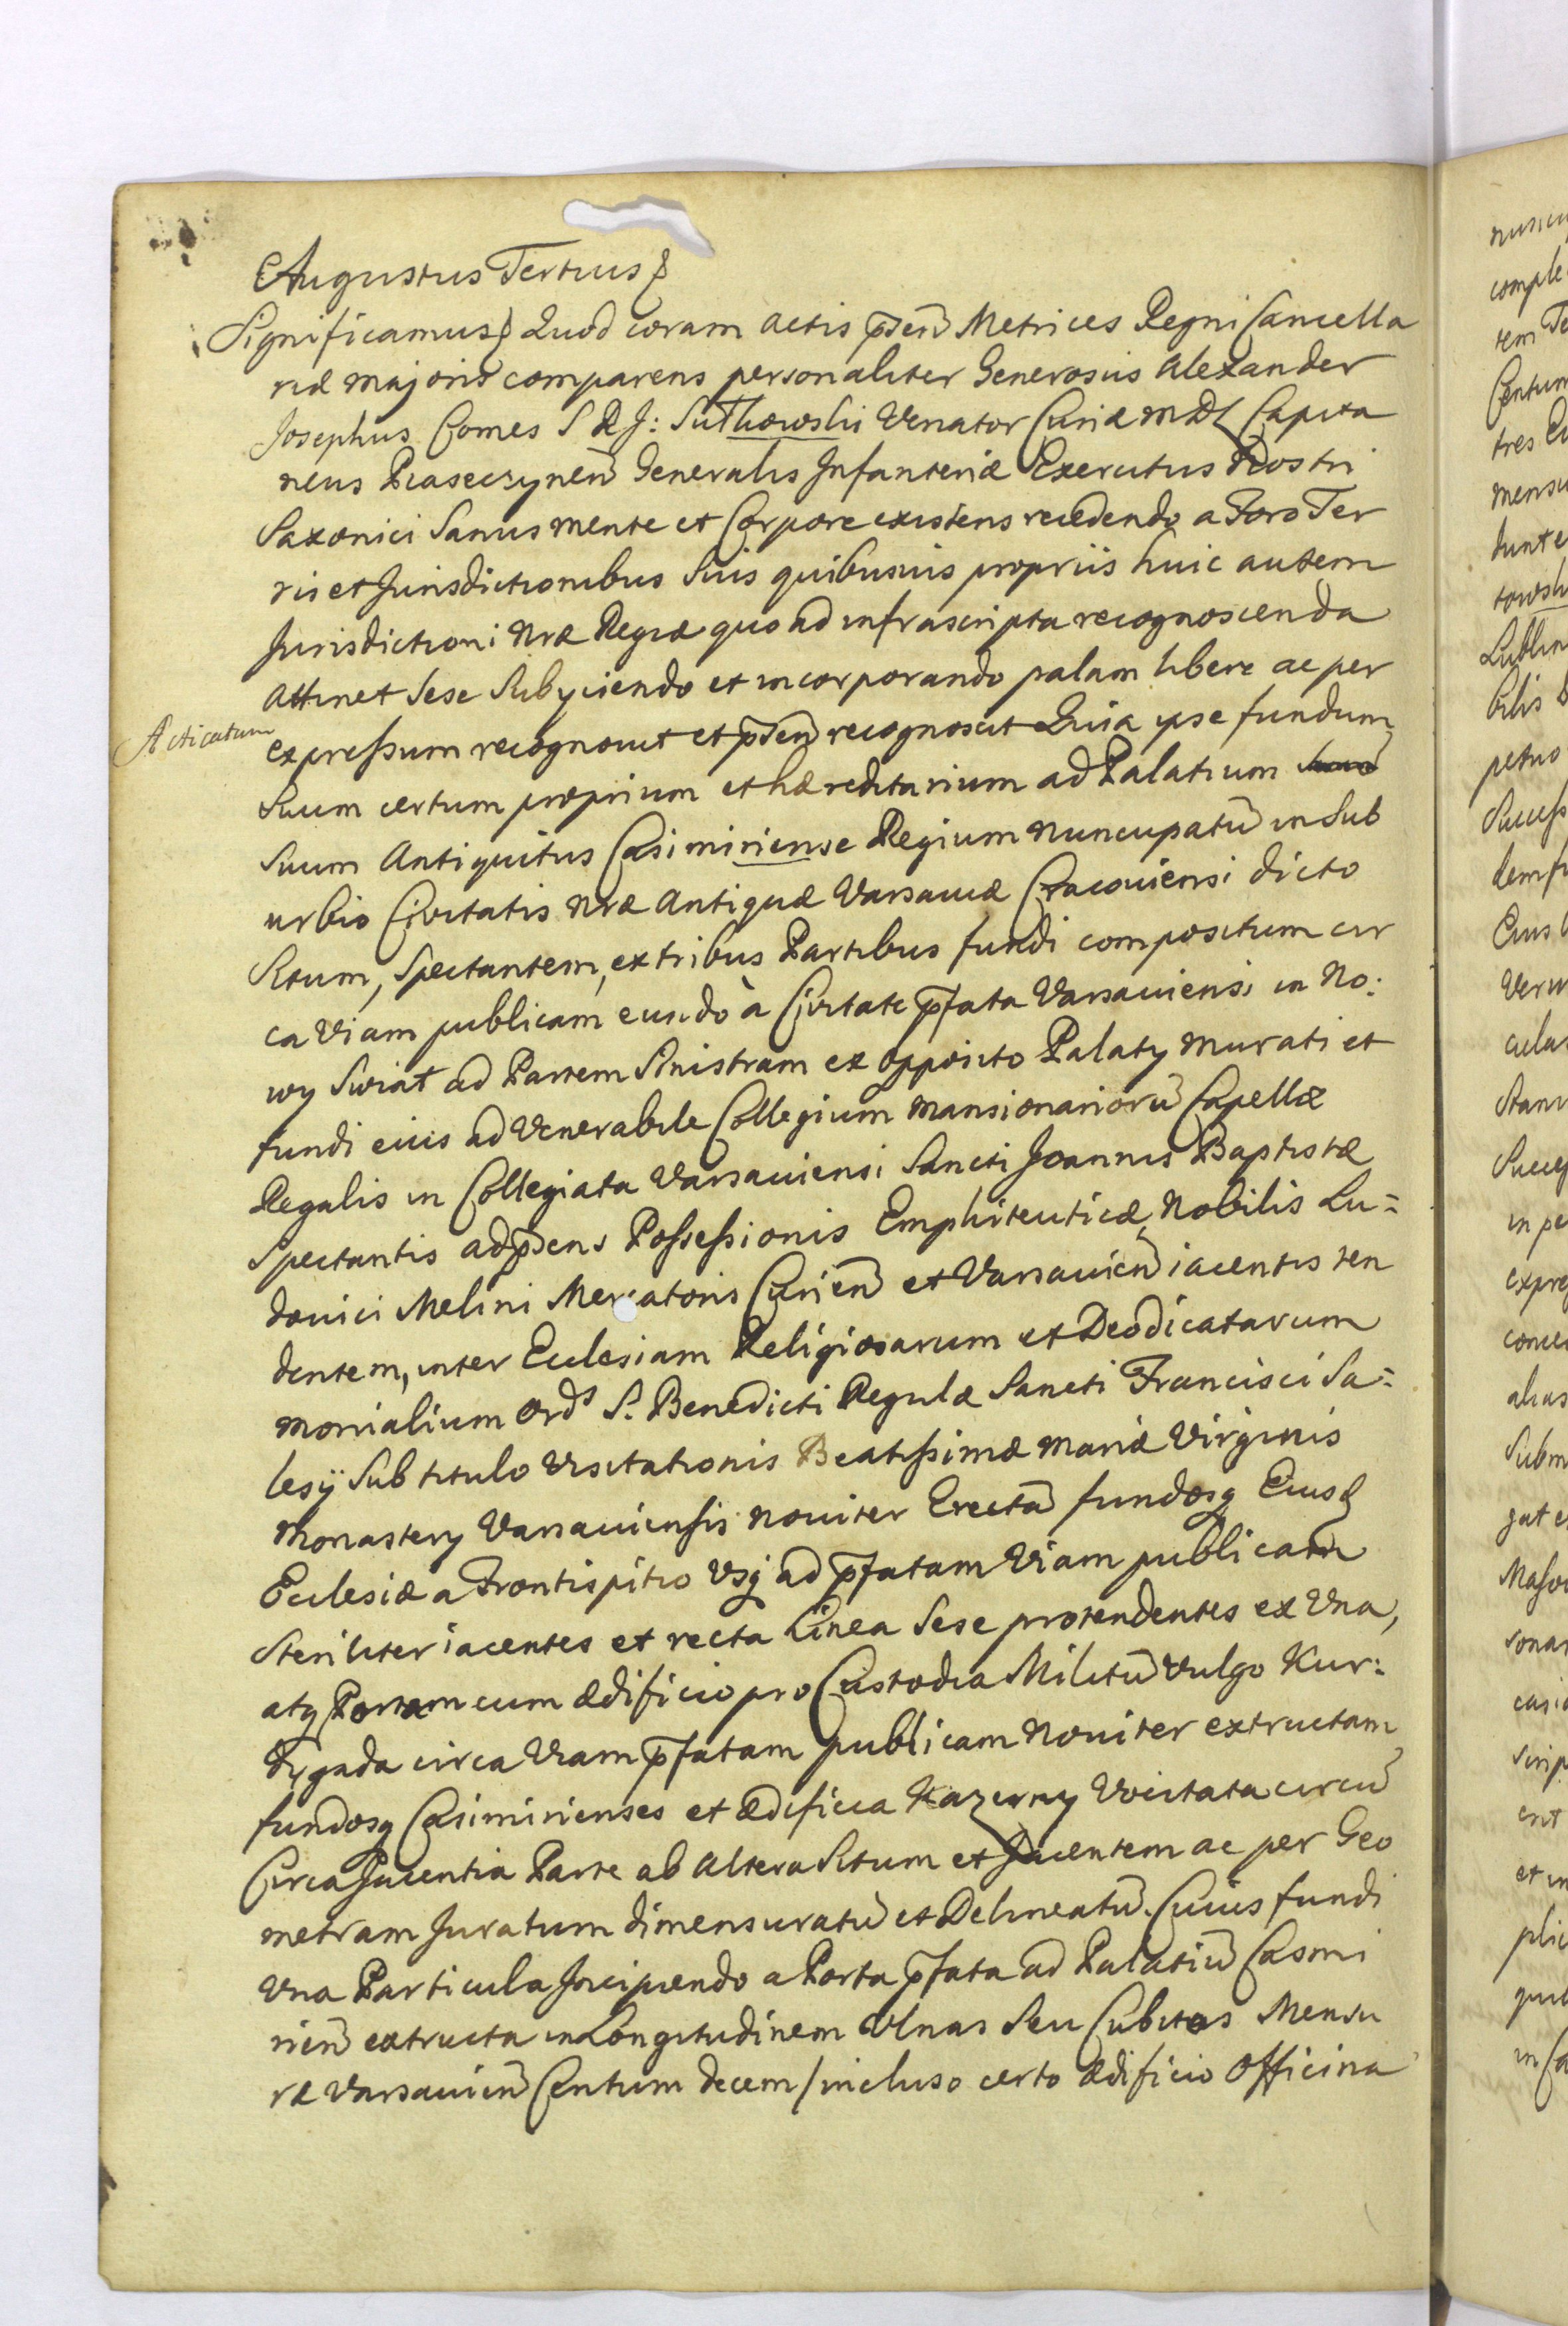 Augustus Tertius
Significamus Quod coram Actis p̄sen̄ Metrices Regni Cancella
riæ majoris comparens personaliter Generosus Alexander
Josephus Comes S R J: Sułkowski Venator Curiæ M D L Capita
neus Piaseczynen̄ Generalis Infanteriæ Exercitus Nostri
Saxonici Sanus mente et Corpore existens recedendo a Foro Ter
ris et Jurisdictionibus Suis quibusvis propriis huic autem
Jurisdictioni Nræ Regiæ quo ad infrascripta recognoscenda
attinet Sese Subyciendo et incorporando palam libere ac per
Acticatum
expressum recognouit et p̄sen̄ recognoscit Quia ipse fundum
Suum certum proprium et hæreditarium ad Palatium
Suum Antiquitus Casimiriense Regium nuncupatū in Sub
urbio Civitatis Nræ Antiquæ Varsauiæ Cracouiensi dicto
Situm, Spectantem, ex tribus Partibus fundi compositum cir
ca Viam publicam eundo à Civitate p̄fata Varsauiensi in No:
wy Swiat ad Partem Sinistram ex opposito Palaty murati et
fundi eius ad Venerabile Collegium Mansionariorū Capellæ
Regalis in Collegiata Varsauiensi Sancti Joannis Baptistæ
Spectantis ad p̄sens Possessionis Emphiteuticæ Nobilis Lu=
douici Melini Mercatoris Curien̄ et Varsauien̄ iacentis ten
dentem, inter Eclesiam Religiosarum et Deodicatarum
monialium Ordˢ S. Benedicti Regulæ Sancti Francisci Sa=
lesÿ Sub titulo Visitationis Beatissimæ Mariæ Virginis
Monastery Varsauiensis nouiter Erectā fundosq Eiusd
Eclesiæ a Frontispitio Usq ad p̄fatam Viam publicam
Steriliter iacentes et recta Linea Sese protendentes ex Una,
atq Portam cum Ædificio pro Custodia Militū Vulgo Kur:
dygada circa Viam p̄fatam publicam Nouiter extructam
fundosq Casimirienses et Ædificia Kazerny Vocitata circū
Circa Jacentia Parte ab Altera Situm et Jacentem ac per Geo
metram Juratum dimensuratū et Delineatū. Cuius fundi
Una Particula Incipiendo a Porta p̄fata ad Palatiū Casmi
rien̄ extructa in Longitudinem Ulnas Seu Cubitos Mensu
ræ Varsauien̄ Centum decem / incluso certo Ædificio Officina